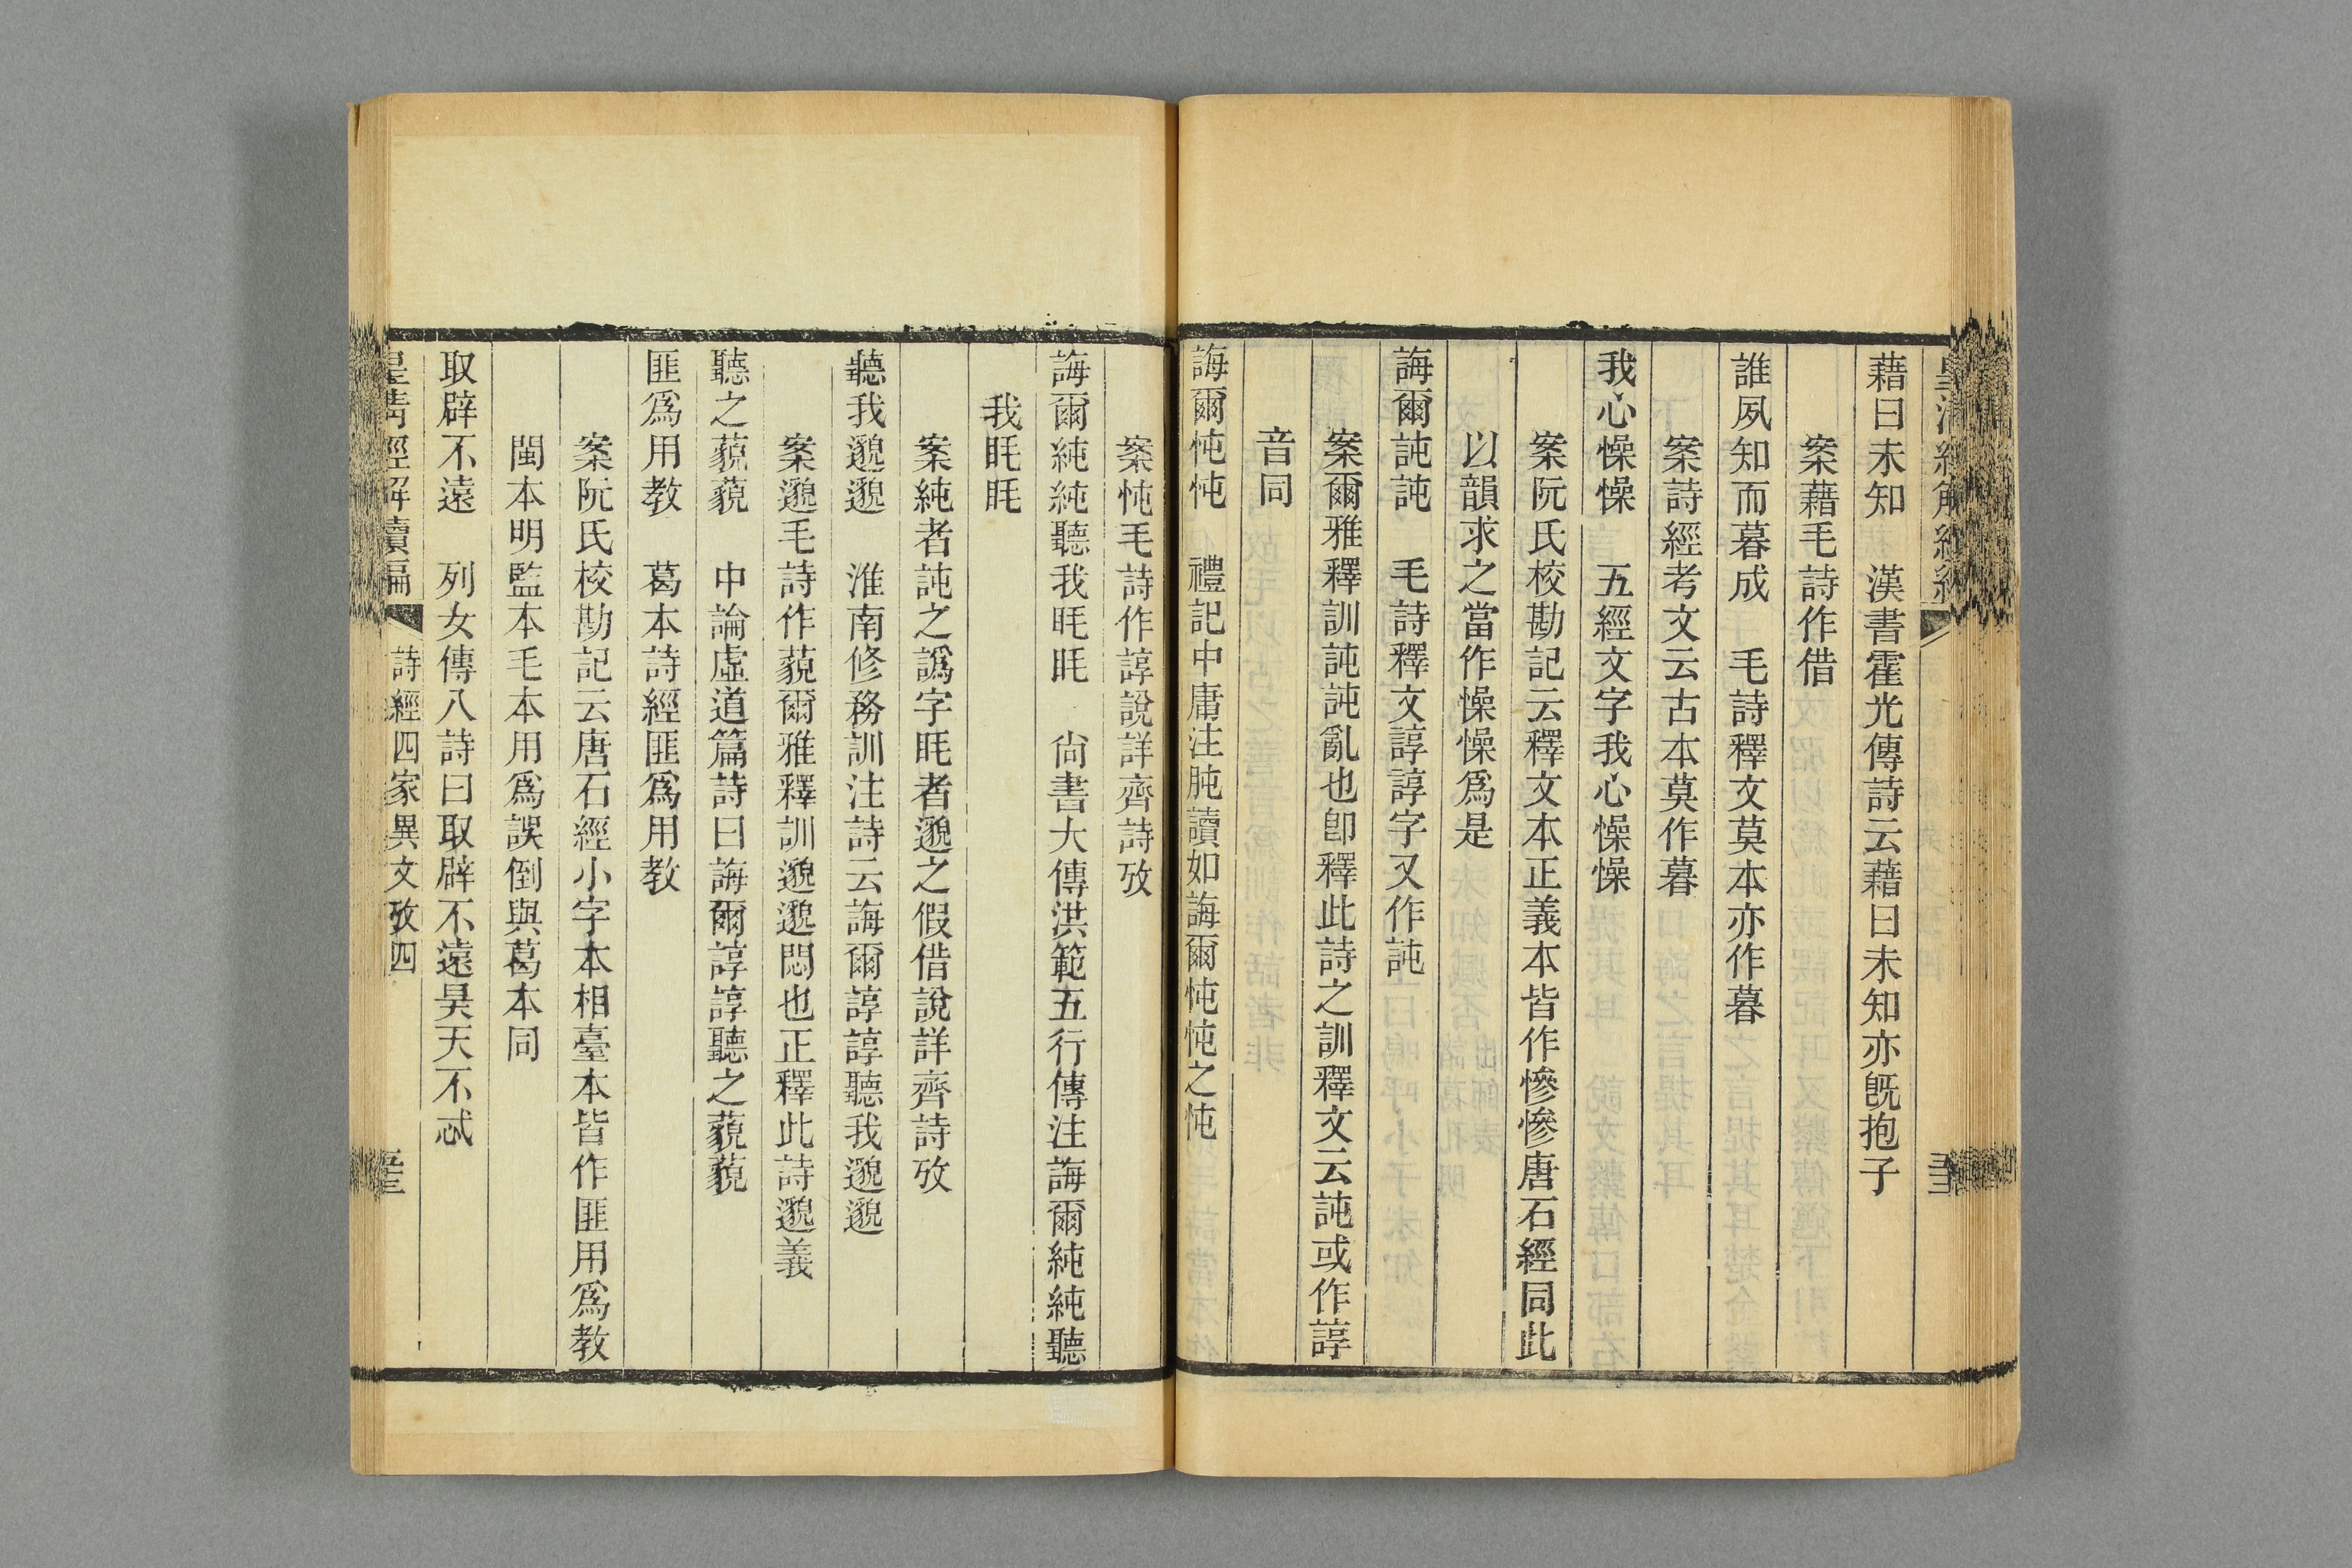 藉曰未知　漢書霍光傳詩云藉曰未知亦旣抱子
案藉毛詩作借
誰夙知而暮成　毛詩釋文莫本亦作暮
案詩經考文云古本莫作暮
我心懆懆　五經文字我心懆懆
案阮氏校勘記云釋文本正義本皆作慘慘唐石經同此
以韻求之當作懆懆爲是
誨爾訰訰　毛詩釋文諄諄字又作訰
案爾雅釋訓訰訰亂也卽釋此詩之訓釋文云訰或作諄
音同
誨爾忳忳　禮記中庸注肫讀如誨爾忳忳之忳
案忳毛詩作諄說詳齊詩攷
誨爾純純聽我眊眊　尙書大傳洪範五行傳注誨爾純純聽
我眊眊
案純者訰之譌字眊者邈之假借說詳齊詩攷
聽我邈邈　淮南修務訓注詩云誨爾諄諄聽我邈邈
案邈毛詩作藐爾雅釋訓邈邈悶也正釋此詩邈義
聽之藐藐　中論虛道篇詩曰誨爾諄諄聽之藐藐
匪爲用教　葛本詩經匪爲用教
案阮氏校勘記云唐石經小字本相臺本皆作匪用爲教
閩本明監本毛本用爲誤倒與葛本同
取辟不遠　列女傳八詩曰取辟不遠昊天不忒
皇淸經解續編　詩經四家異文攷四